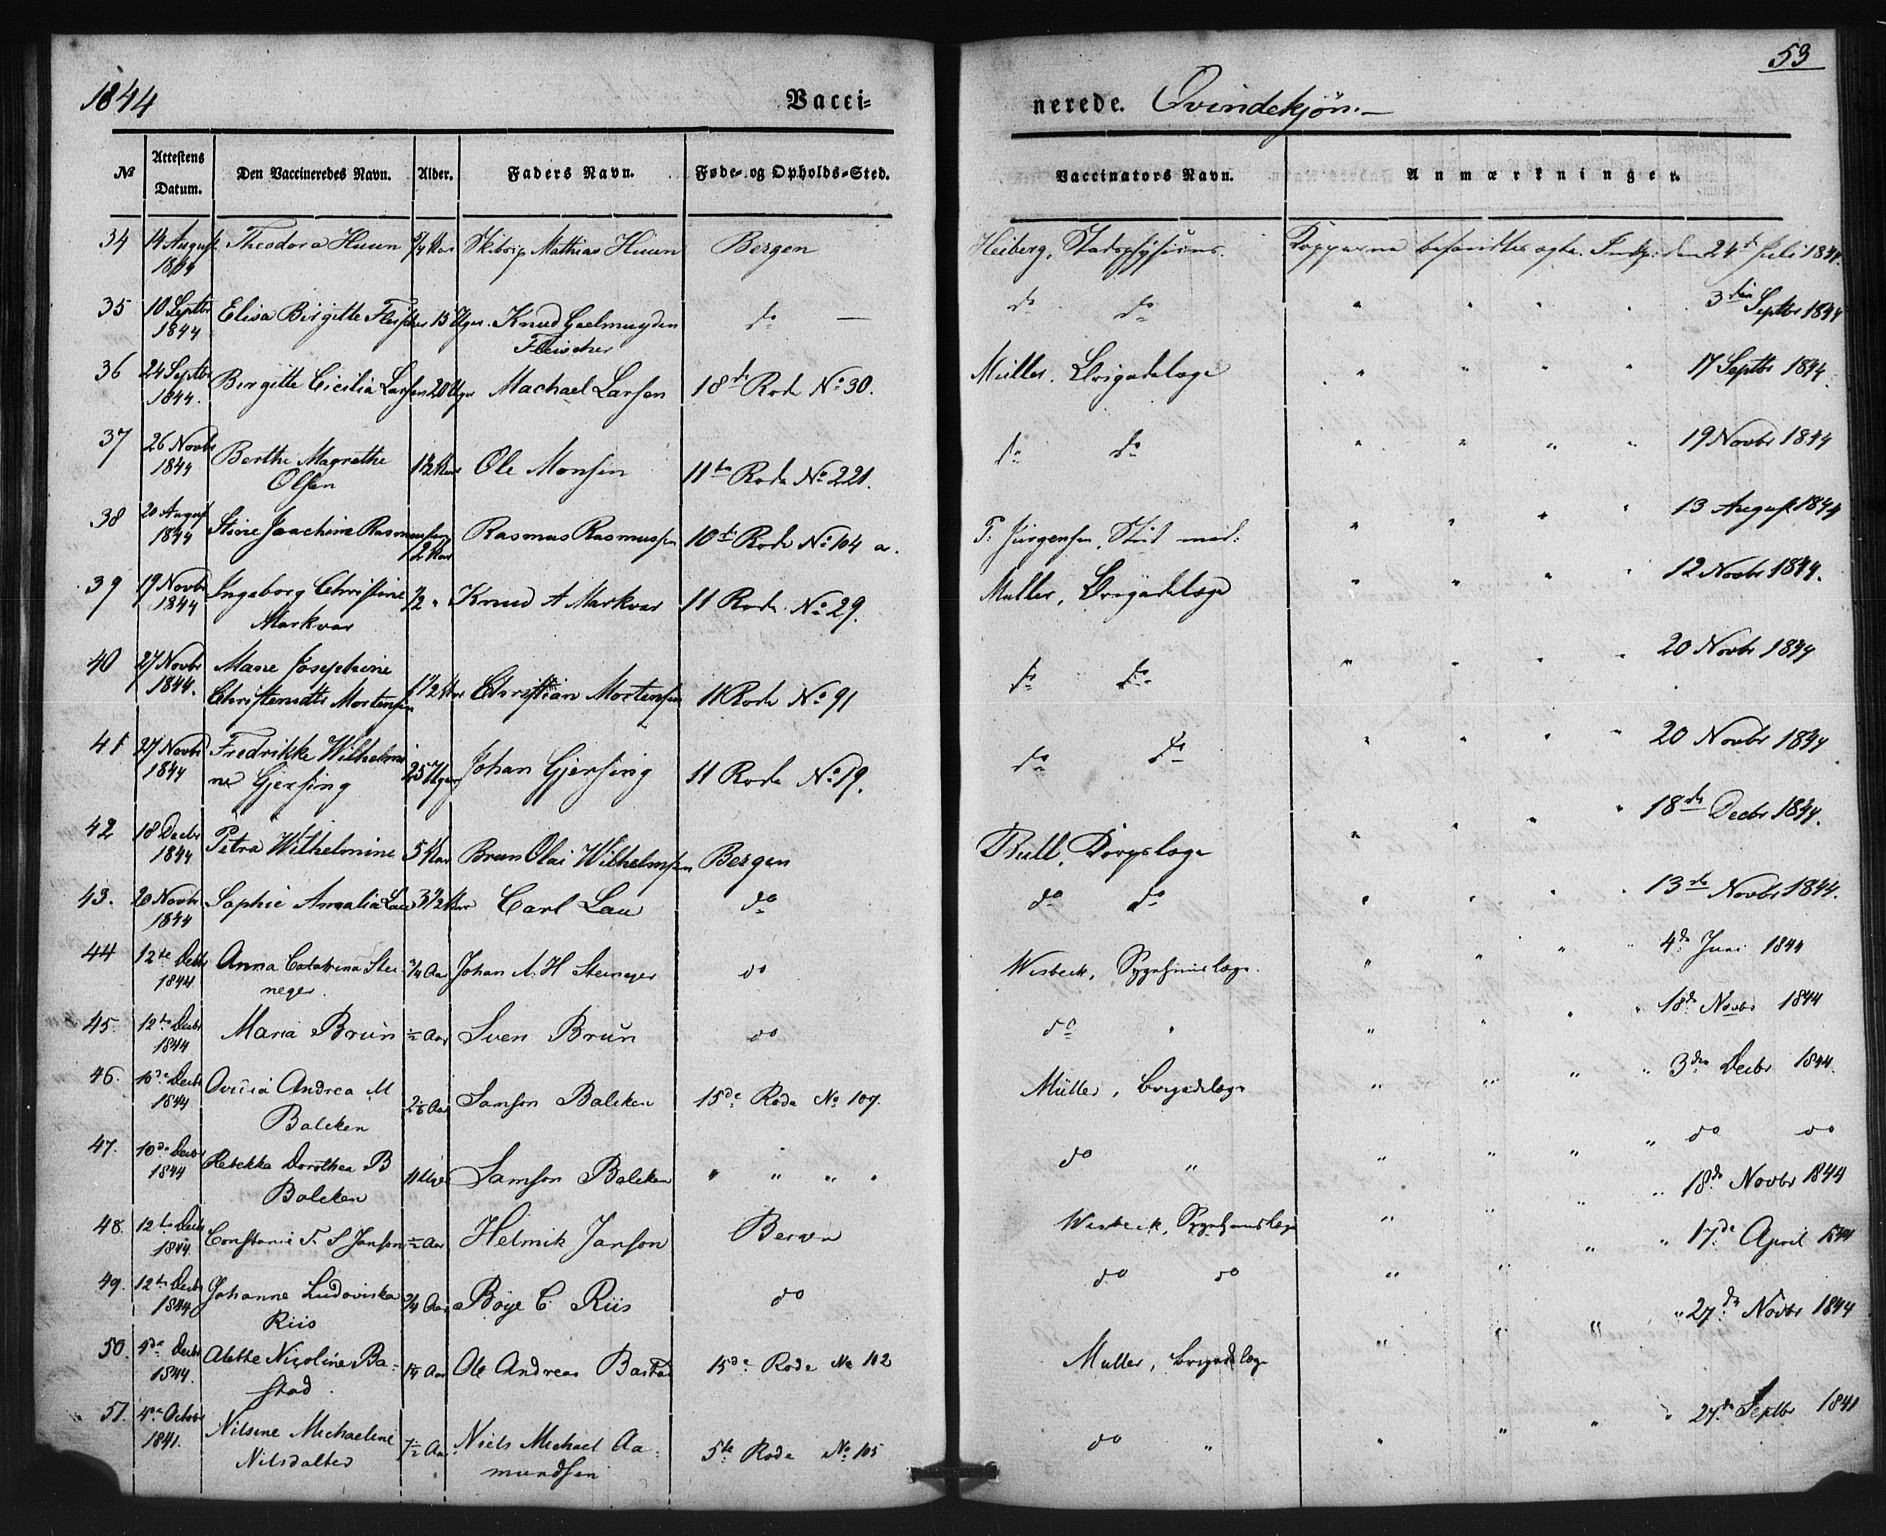 1844 Vacci= nerede. Qvindekjøn. 53
No Attestens Datum. Den Vaccineredes Navn. Alder. Faders Navn. Føde- og Opholds-Sted. Vaccinators Navn. Anmærkninger.
34 14 August 1844 Theodora Huun 3/4 Aar Skibsp Mathias Huun Bergen Heiberg, Stadsphysicus. Kopperne befandtes ægte. Indp: den 24d Juli 1844.
35 10 Septbr 1844 Elisa Birgitte Fleischer 15 Uger. Knud Geelmuyden Fleischer do — do do " " " 3die Septbr 1844
36 24 Septbr 1844. Birgitte Cicilia Larsen 20 Uger Machael Larsen 18de Rode No 30. Müller, Brigadelæge " " " " 17 Septbr 1844.
37 26 Novbr 1844 Berthe Magrethe Olsen 1 1/2 Aar Ole Monsen 11te Rode No 221. do do " " " " 19 Novbr 1844
38 20 August 1844 Stine Joachine Rasmussen 1/2 Aar Rasmus Rasmussen 10de Rode No 104 a. F: Jürgensen, Stud med: " " " " 13 August 1844
39 19 Novbr 1844 Ingeborg Christine Markvar 1/2 " Knud A Markvar 11 Rode No 29. Müller, Brigadelæge " " " " 12 Novbr 1844.
40 27 Novbr 1844. Marie Josephine Christensdtr Mortensen 1 1/2 Aar Christian Mortensen 11 Rode No 91 do do " " " " 20 Novbr 1844
41 27 Novbr 1844 Fredrikke Wilhelmine Gjersing 25 Uger Johan Gjersing 11 Rode No 19. do do " " " " 20 Novbr 1844
42 18 Decbr 1844 Petra Wilhelmine 5 Aar Brun Olai Wilhelmsen Bergen Bull, Corpslæge " " " " 18de Decbr 1844.
43. 20 Novbr 1844 Sophie Amalia Lau 3 1/2 Aar Carl Lau do do do " " " " 13de Novbr 1844.
44 12te Decbr 1844 Anna Catatrina Steineger 3/4 Aar Johan A. H Steineger do Wisbeck, Sygehuuslæge. " " " " 4de Juni 1844
45. 12te Decbr 1844 Maria Brun 1/2 Aar Sven Brun do do " " " " " 18de Novbr 1844
46. 10de Decbr 1844 Andrea M Balcken Aar Samson Balcken 15de Rode No 107. Müller, Brigadelæge " " " " 3die Decbr 1844.
47. 10de Decbr 1844 Rebekka Dorothea B Balcken 11 Uger Samson Balcken " " " " do " " " " " do do
48. 12te Decbr 1844. Constance F. S Janson 1/2 Aar Helmik Janson Bergen Wisbeck, Sygehuuslæge " " " " 18de Novbr 1844
49. 12te Decbr 1844 Johanne Ludoviska Riis 3/4 Aar Boye C. Riis do do do " " " " 17de April 1844
50. 4de Decbr 1844. Alette Nicoline Bastad 1/4 Aar Ole Andreas Bastad 15de Rode No 102 Müller, Brigadelæge " " " " 27de Novbr 1844
51. 4de Octobr 1841. Nilsine Michaeline Nilsdatter 7 1/2 Aar Niels Michael Aamundsen 5te Rode No 105 do " " " " " 27de Septbr 1841